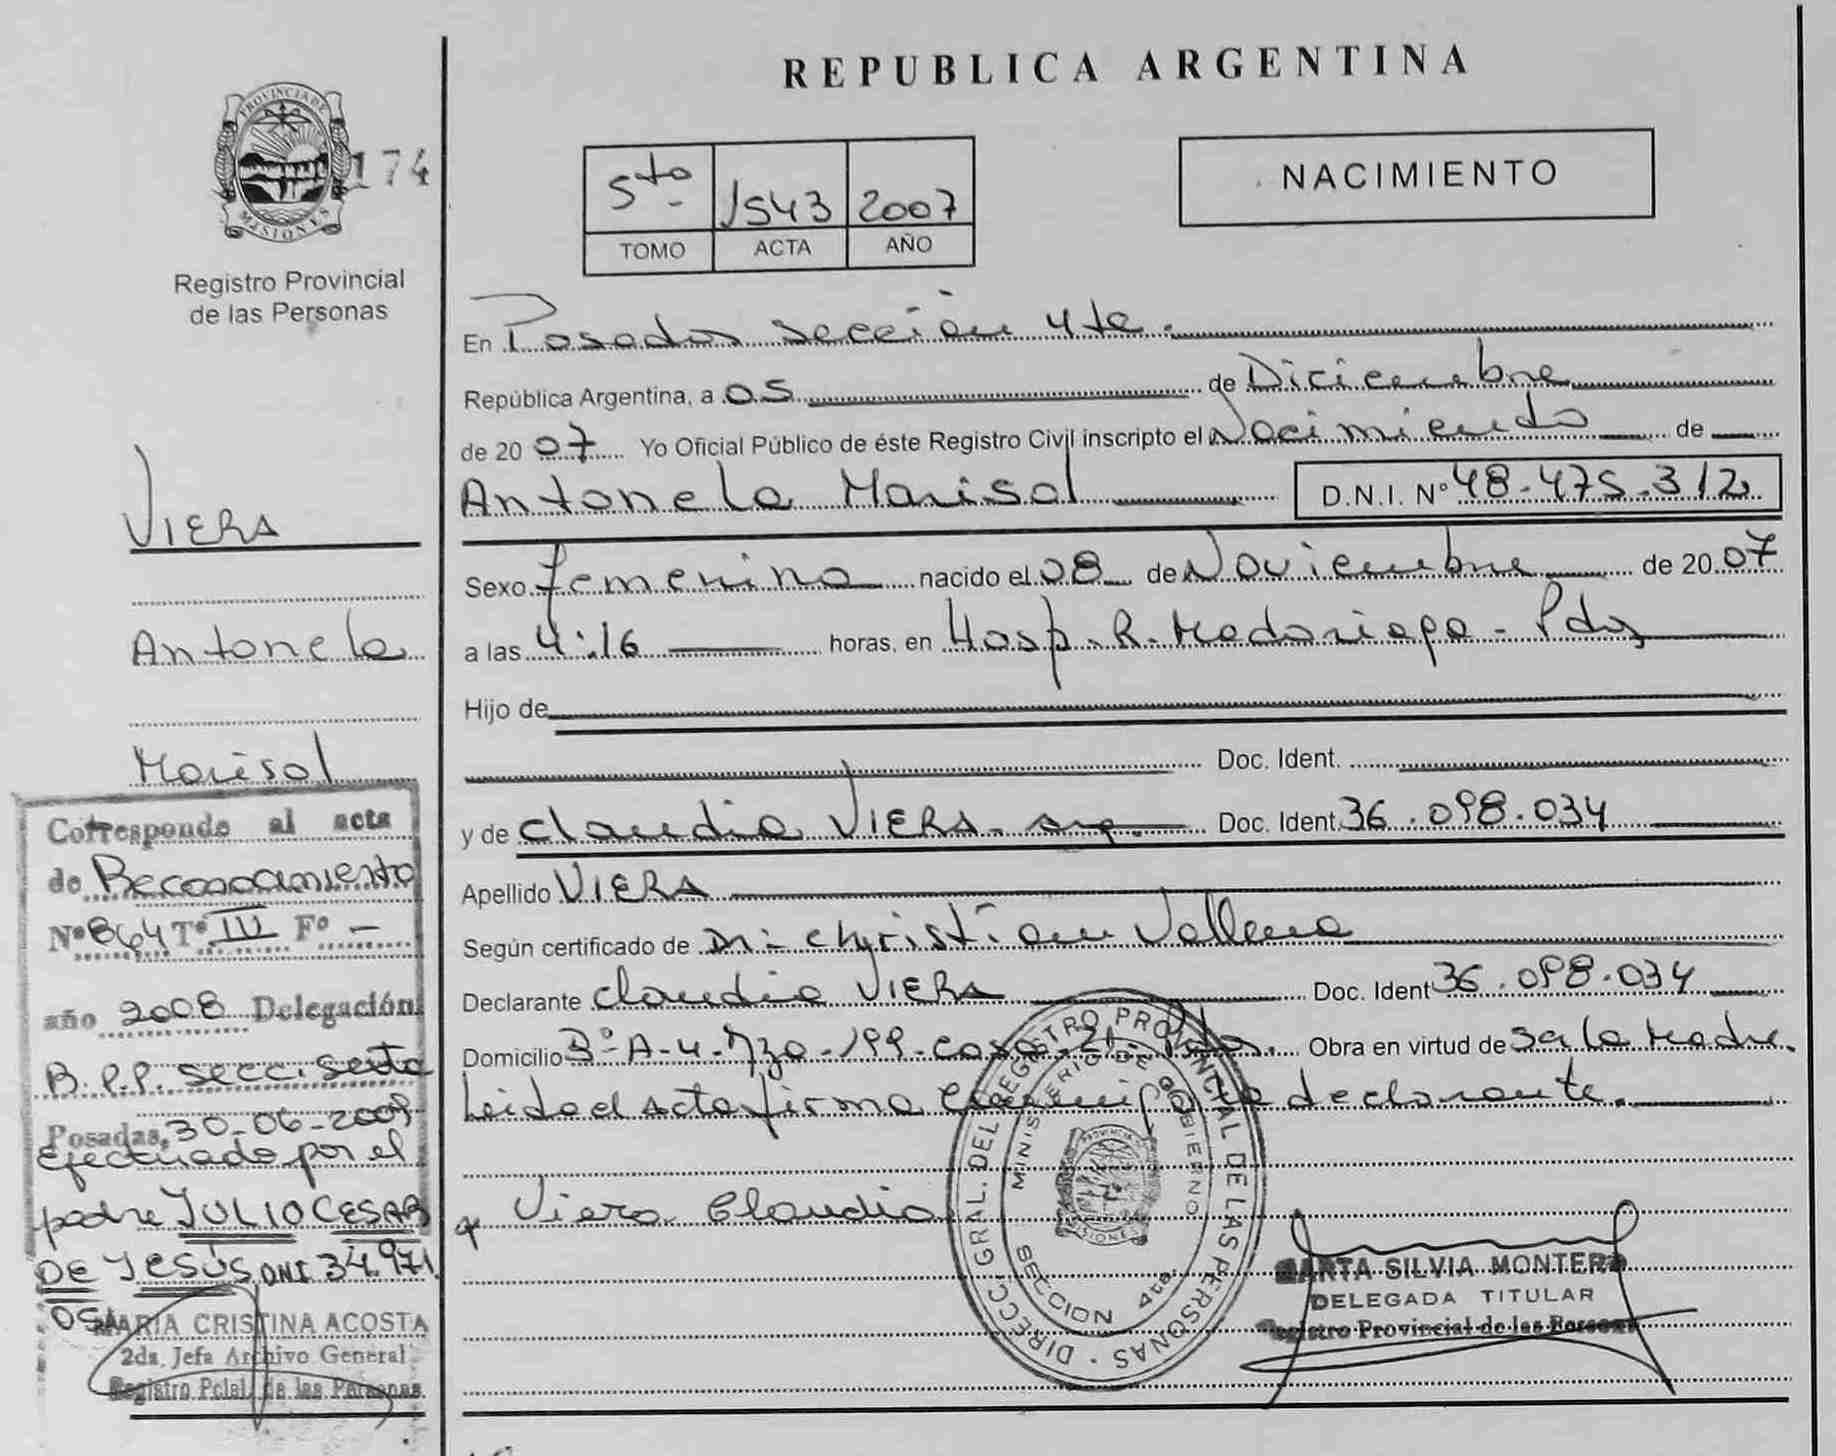 REPUBLICA ARGENTINA
PROVINCIA DE
MISIONES
174
Registro Provincial
de las Personas
5to
1543
2007
TOMO
ACTA
AÑO
NACIMIENTO
En Posadas sección 4ta.
República Argentina, a 05 de Diciembre
de 2007 Yo Oficial Público de éste Registro Civil inscripto el Nacimiento de
Antonela Marisol D.N.I. Nº 48.475.312
Sexo femenino nacido el 08 de Noviembre de 2007
a las 4:16 horas, en Hosp. R. Madariaga - Pdas
Hijo de
Doc. Ident.
y de Claudia VIERA. arg. Doc. Ident. 36.098.034
Apellido VIERA
Según certificado de Dr. Christian Vallena
Declarante Claudia VIERA Doc. Ident 36.098.034
Domicilio Bº A-4-Mzo-199-casa-21- Pdas. Obra en virtud de ser la Madre.
Leida el Acta firma conmigo la declarante.
Viera Claudia
DIRECC. GRAL. DEL REGISTRO PROVINCIAL DE LAS PERSONAS
MINISTERIO DE GOBIERNO
SECCION 4ta.
MARTA SILVIA MONTERO
DELEGADA TITULAR
Registro Provincial de las Personas
VIERA
Antonela
Marisol
Corresponde al acta
de Reconocimiento
Nº 864 Tº III Fº -
año 2008 Delegación
R.P.P. secc. sexta
Posadas, 30-06-2009
Efectuado por el
padre JULIO CESAR
DE JESÚS DNI 34.971.
051
MARIA CRISTINA ACOSTA
2da. Jefa Archivo General
Registro Pcial. de las Personas